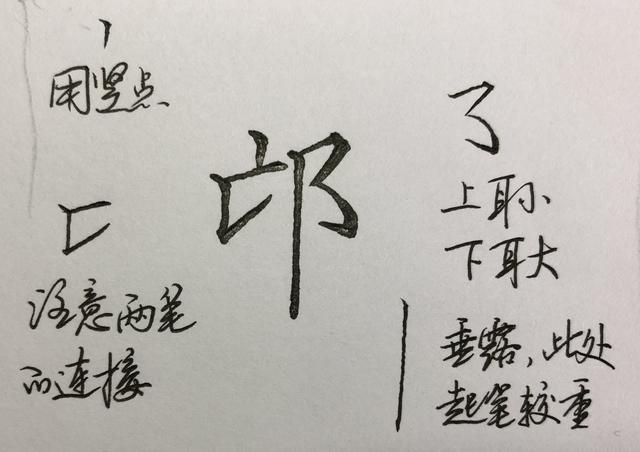 用竖点
邙
上耳小
下耳大
注意两笔
的连接
垂露，此处
起笔较重